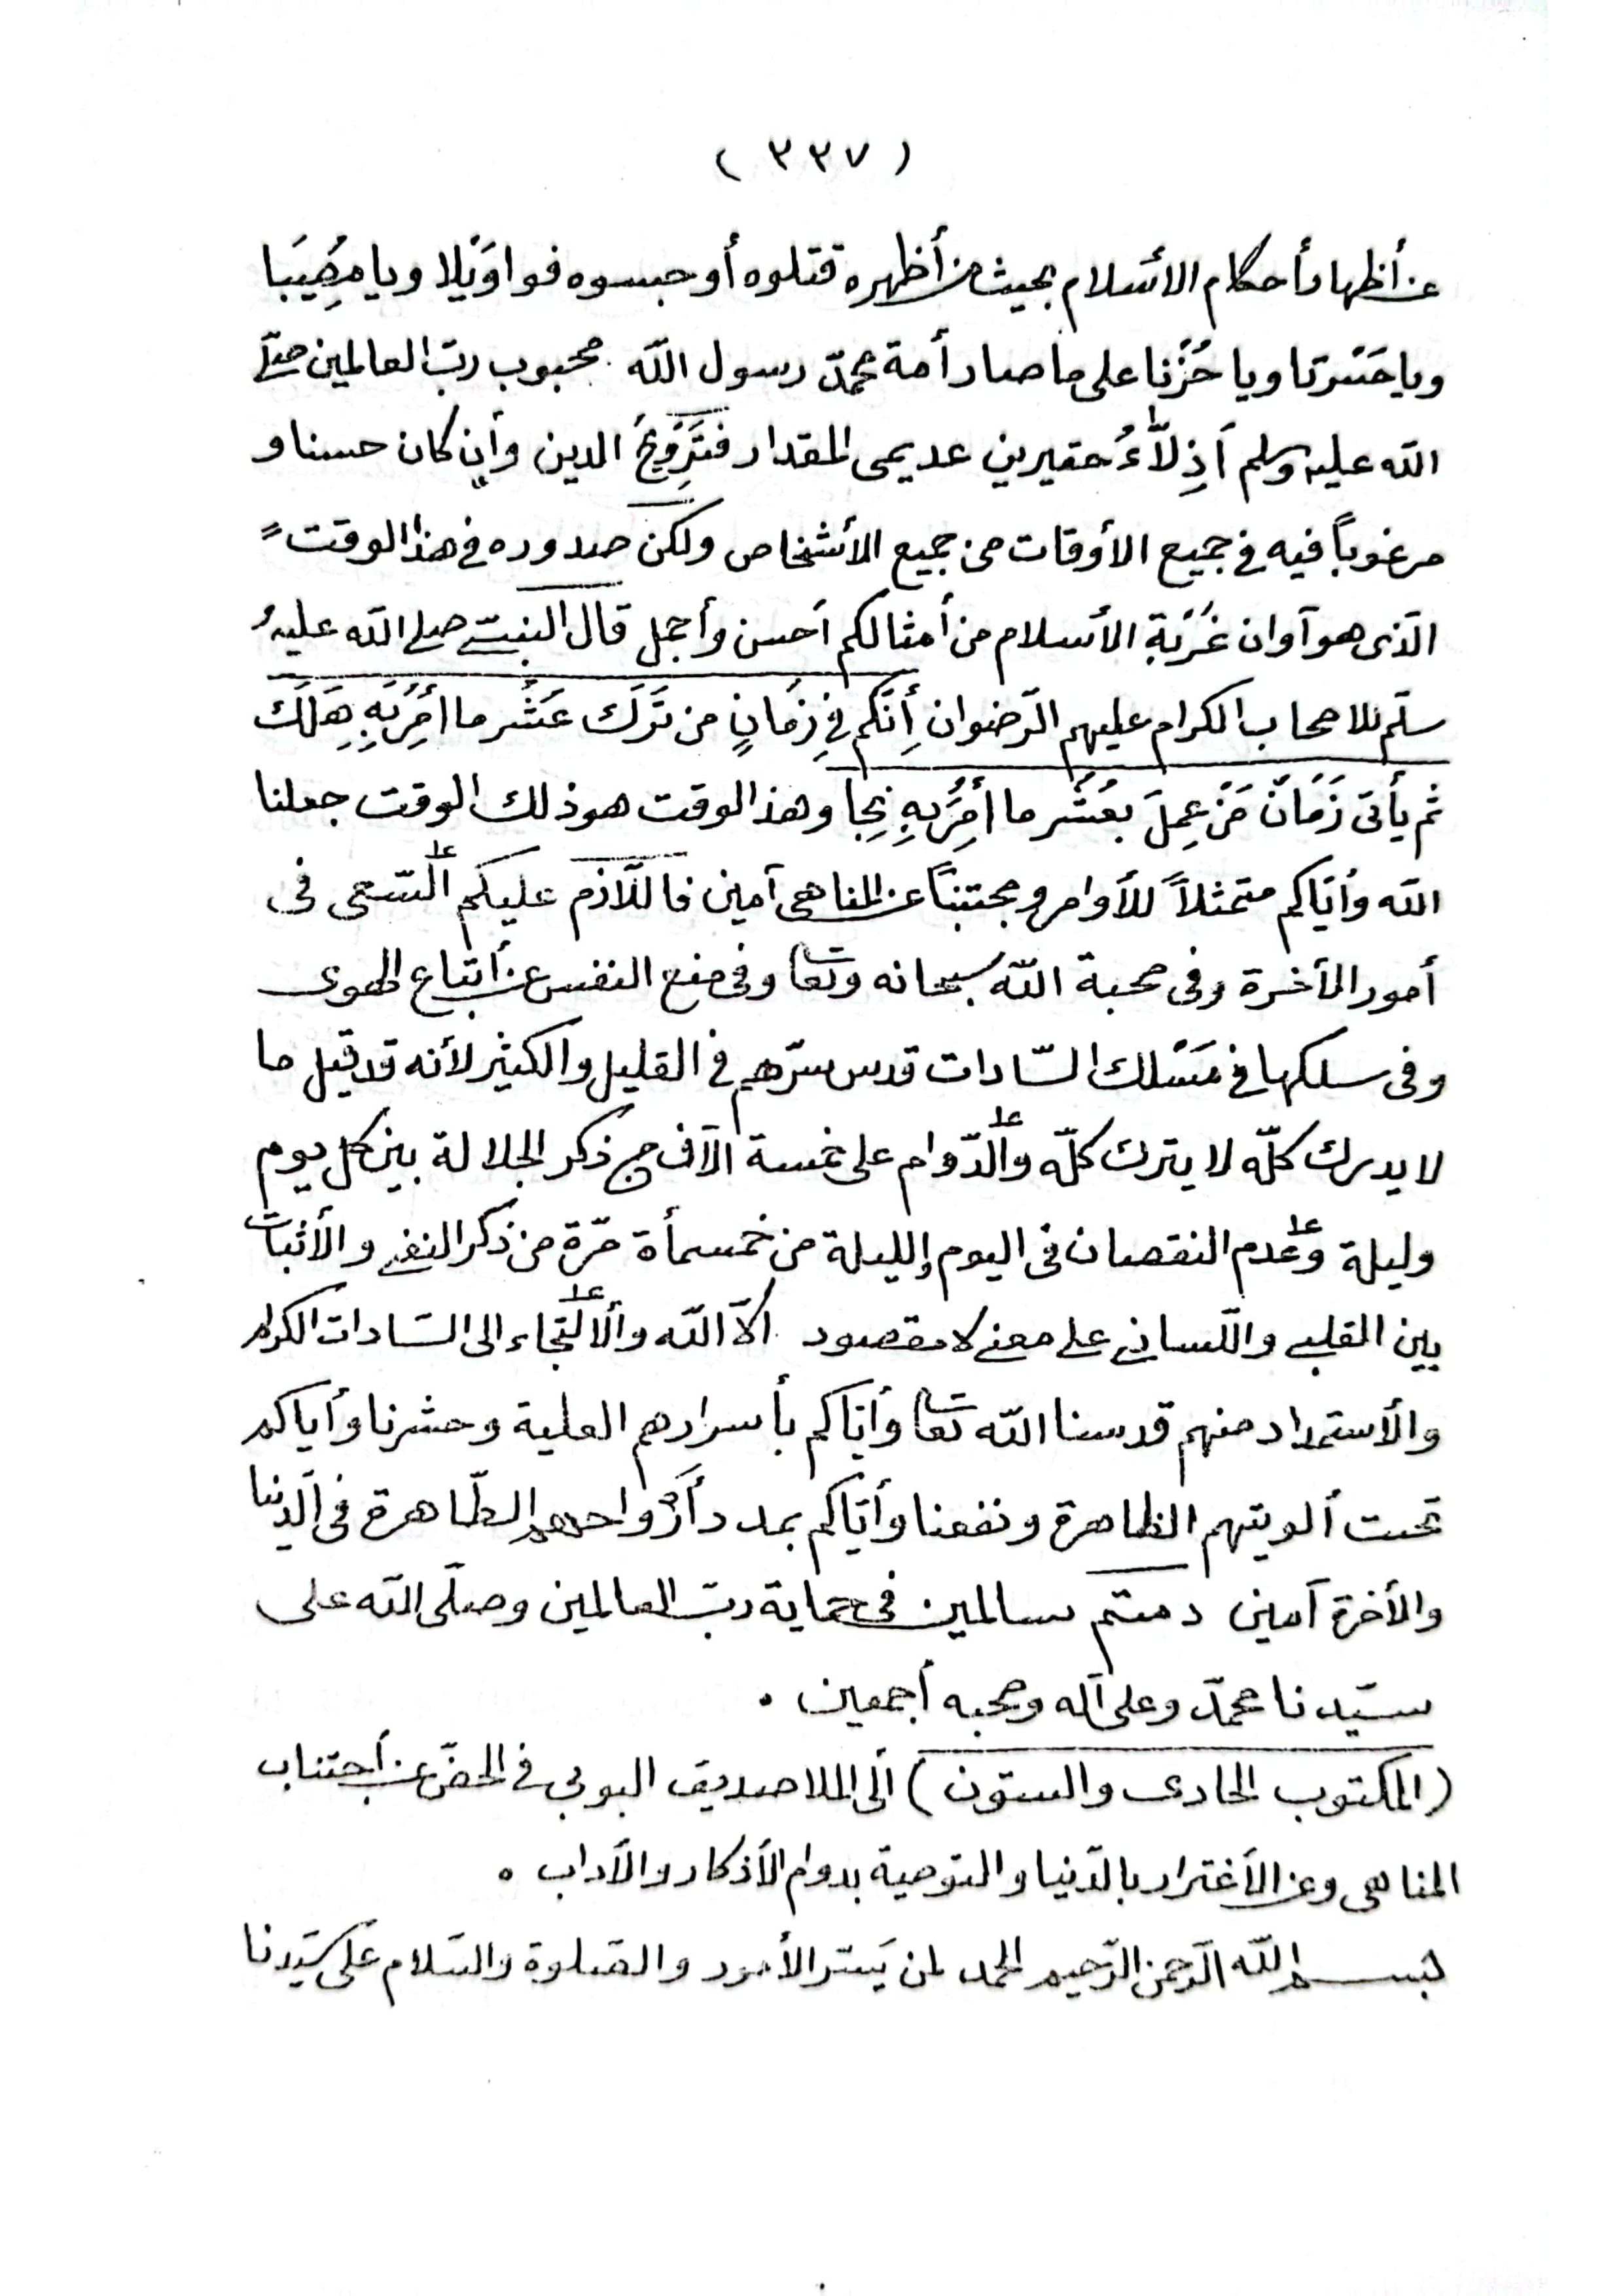 ( ٣٣٧ )
عن أظهار أحكام الأسلام بحيث من أظهره قتلوه أو حبسوه فواوَيْلا ويا مِصُيَبَا
ويا حَسْرتا ويا حُزْنا على ما صار أمة محمدّ رسول اللّه محبوب ربّ العالمين صلّى
اللّه عليه وسلم أَذِلّاءُ حقيرين عديمى المقدار فَتَرْوِيجُ الدين وأن كان حسنا و
مرغوباً فيه فى جميع الأوقات من جميع الأشخاص ولكن صدوره فى هذا الوقت
الّذى هو آوان غُرْبَةِ الأسلام من أمثالكم أحسن وأجمل قال النبىّ صلى اللّه عليه و
سلّم للاصحاب الكرام عليهم الرّضوان أِنّكم فِى زمَانٍ من تَرَك عُشْر ما أُمِرَ بِهِ هَلَكَ
ثم يأتى زَمَانٌ مَنْ عمِلَ بعُشْر ما أُمِرَ بِهِ نجا وهذا الوقت هو ذلك الوقت جعلنا
اللّه وأيّاكم متمثلاً للأوامر ومجتنباً عن المناهى آمين فاللّازم عليكم السّعى فى
أمور الأخرة وفى محبة اللّه سبحانه وتعا وفى منع النفس عن أتباع الهوى
وفى سلكها فى مَسْلك السّادات قدس سرّهم فى القليل والكثير لأنه قد قيل ما
لا يدرك كلّه لا يترك كلّه والّدوام على خمسة الآف من ذكر الجلالة بين كل يوم
وليلة وعدم النقصان فى اليوم والليلة من خمسمأة مرّة من ذكر النفى والأثبات
بين القلبى واللّسانى على معنى لا مقصود الاّ اللّه والألتجاء الى السّادات الكرام
والأستمداد منهم قدسنا اللّه تعا وأيّاكم بأسرارهم العلية وحشرنا وأياكم
تحت ألويتهم الظاهرة ونفعنا وأيّاكم بمدد أرْواحهم الطّاهرة فى الدّنيا
والأخرة آمين دمتم سالمين فى حماية ربّ العالمين وصلّى اللّه على
سيّدنا محمدّ وعلى آله وصحبه أجمعين .
(المكتوب الحادى والستون) ألى الملا صديق البوبى فى الحضّ عن أجتناب
المناهى وعن الأغترار بالدّنيا والتوصية بدوام الأذكار والأداب .
بسم اللّه الرّحمن الرّحيم الحمد لمن يَسّر الأمور والصّلوة والسّلام على سيّدنا